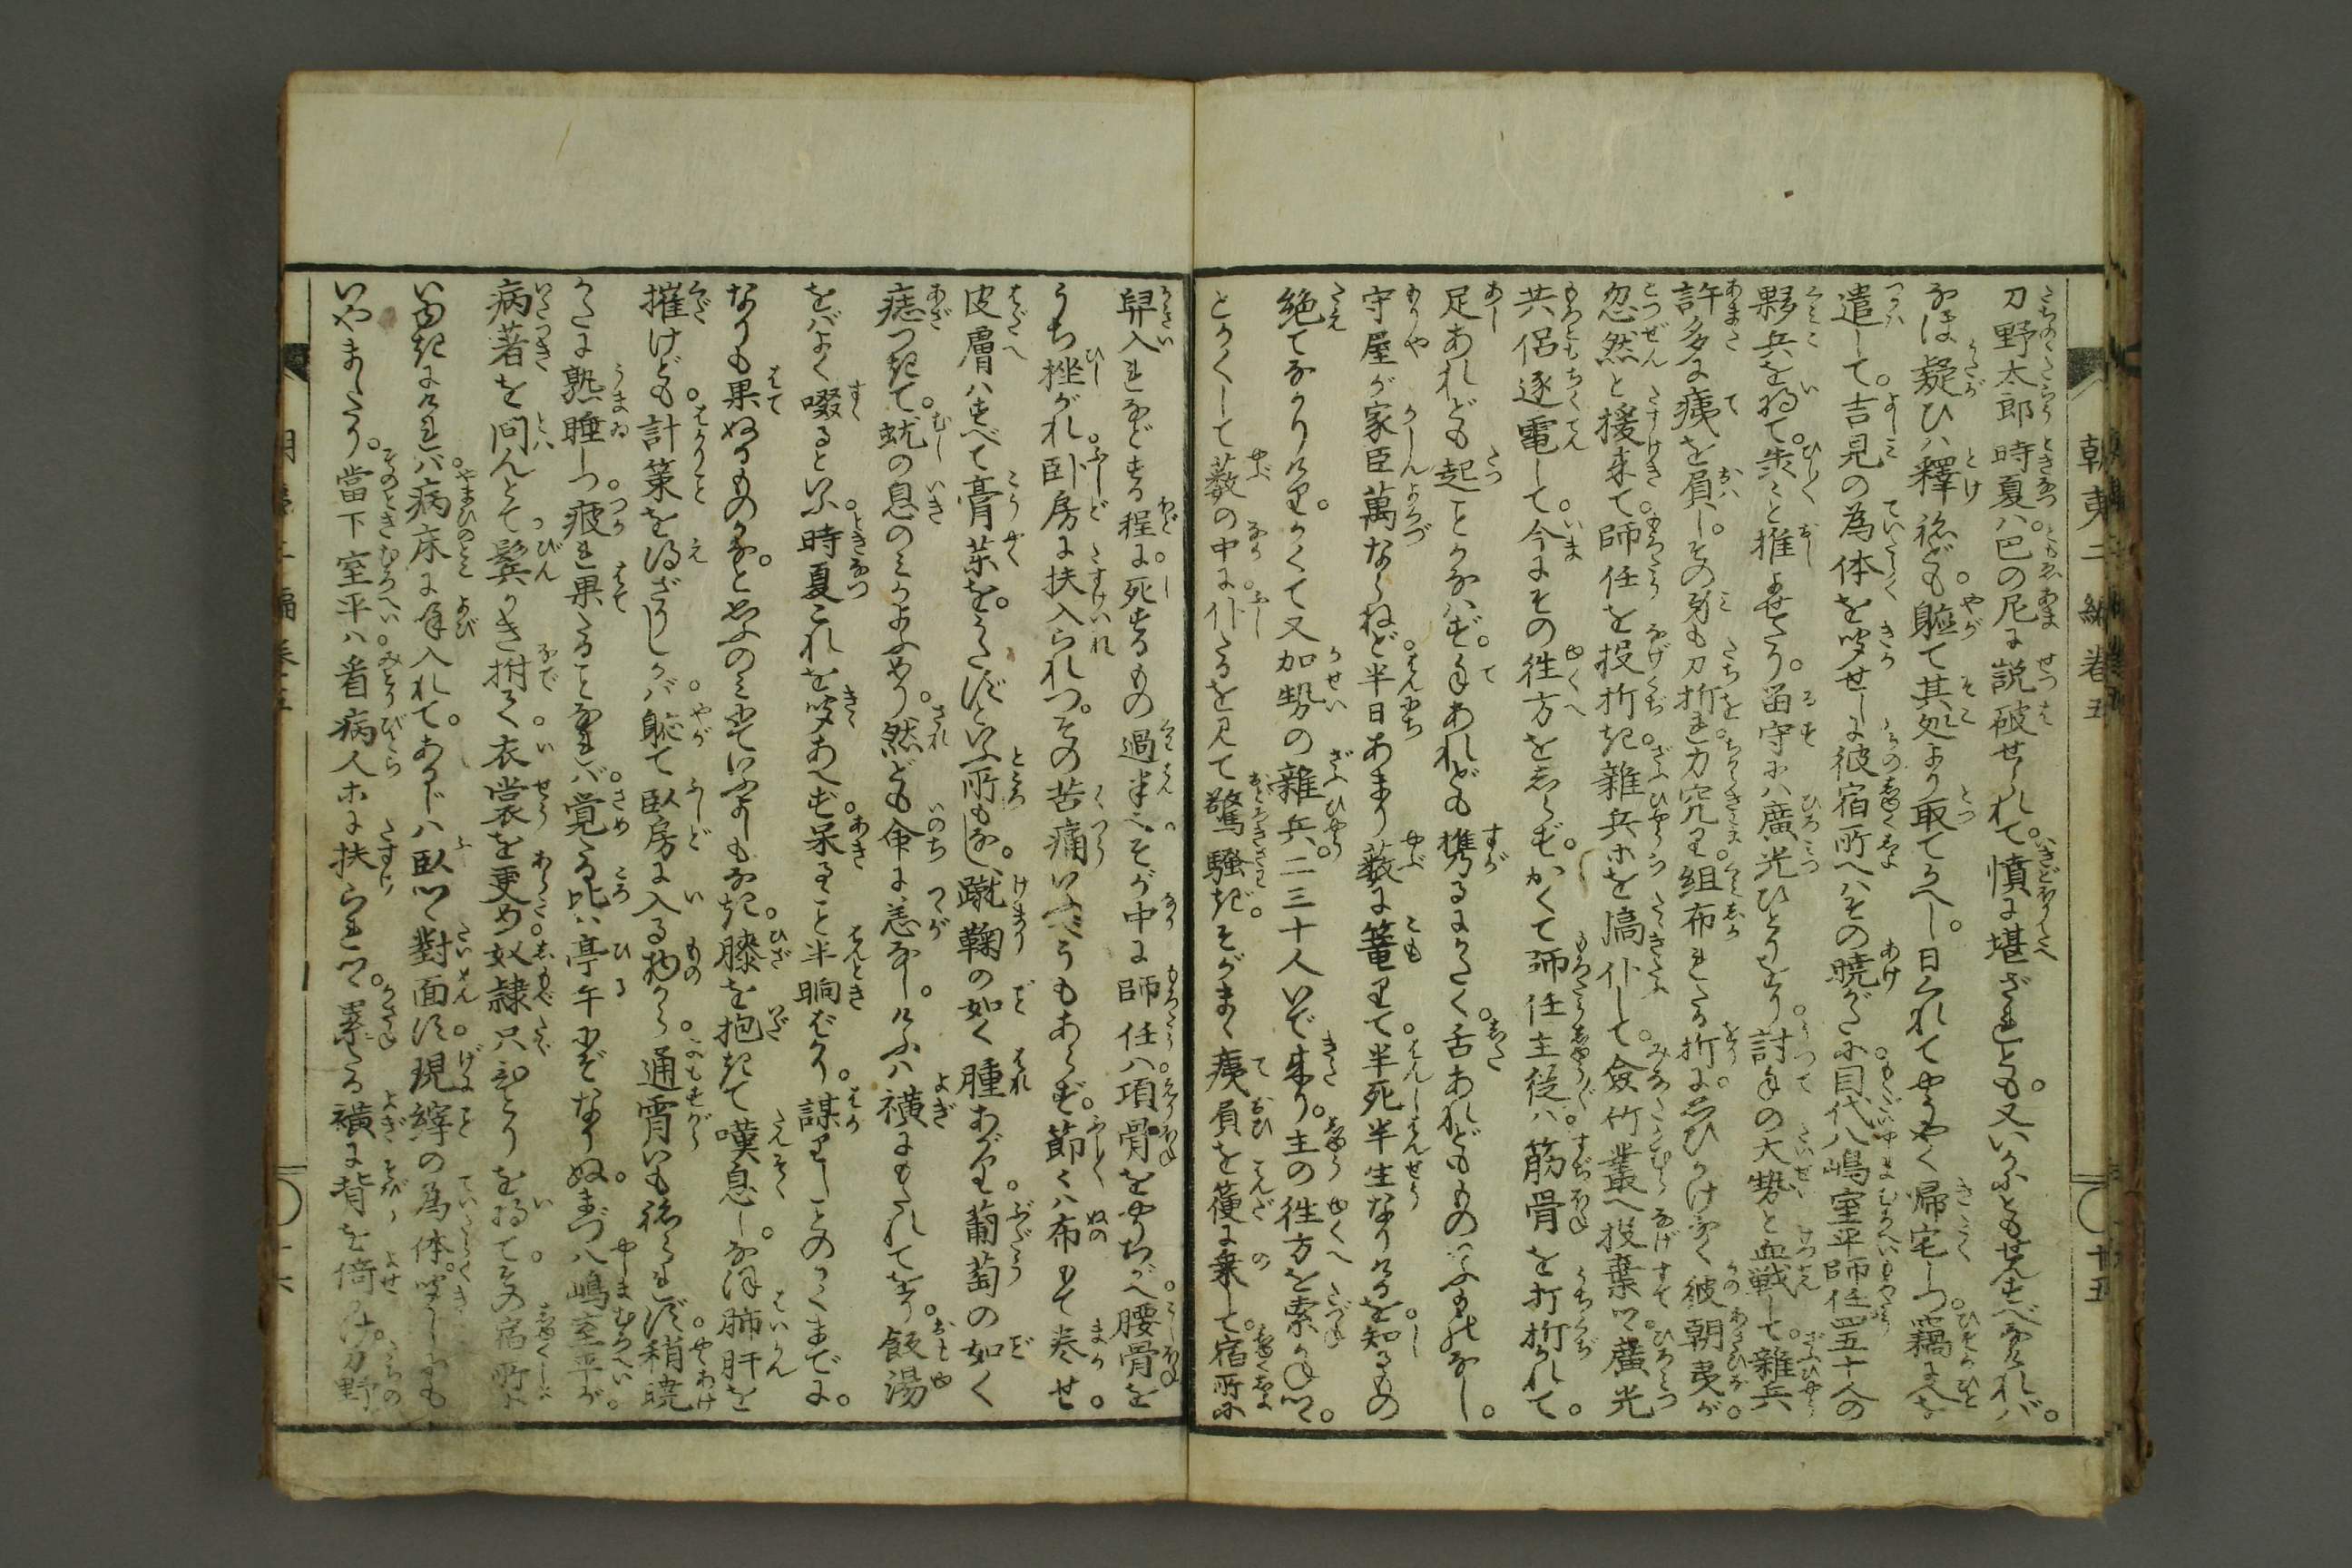 朝夷二編卷五
刀野太郎時夏ハ巴の尼に説破せられて。憤に堪ざれども。又いかにともせんすべなければ。
なほ疑ひハ釋ねども。軈て其処より取てかへし。日くれてやうやく帰宅しつ。竊に人を
遣して。吉見の為体を聞せしに。彼宿所へハその曉がたに。目代八嶋室平師任四五十人の
夥兵を将て。犇々と推よせたり。留守にハ廣光ひとりをり。討手の大勢と血戦して。雑兵
許多に痍を負し。その身も刀折れ力究り。組布れたる折に。思ひかけなく彼朝夷が。
忽然と援来て。師任を投折き。雑兵ホを偃仆して。僉竹叢へ投棄つ。廣光
共侶逐電して。今にその徃方をしらず。かくて師任主従ハ。筋骨を打折れて。
足あれども起ことかなはず。手あれども携るにかたく。舌あれどもものいふものなし。
守屋が家臣萬ならねど半日あまり。藪に篭りて。半死半生なりけるを。知るもの
絶てなかりけり。かくて又加勢の雑兵。二三十人いで来り。主の徃方を索かねつ。
とかくして藪の中に仆たるを見て驚騒ぎ。そがまゝ痍負を篗に乗して。宿所に
十五
舁入れなどする程に。死するもの過半也。そが中に師任ハ。項骨をやぶられ。腰骨を
うち挫がれ。卧房に扶入られつ。その苦痛いふべうもあらず。節々ハ布もて巻せ。
皮膚ハすべて膏薬を。さゝずといふ所もなし。蹴鞠の如く腫あがり。葡萄の如く
痣つきて。虻の息のミかよふめり。然ども命に恙なし。けふハ襖にもたれてをり。飯湯
をばよく啜るといふ。時夏これを聞あへず。呆ること半晌ばかり。謀りしことのかくまでに。
なりも果ぬるものかな。と思ふのミにていふよしもなき。膝を抱きて嘆息し。なほ肺肝を
摧けども。計策を得ざりしかバ。軈て臥房に入る物から。通宵いも寝られず。稍曉
かたに熟睡しつ。疲れ果たることなれバ。覚る比ハ亭午にぞなりぬ。まづ八嶋室平が
病著を問んとて。鬢かき拊て。衣裳を更め。奴隷只ひとりを将て。その宿所に
いゆきにければ。病床に呼入れて。あるじハ臥つゝ對面す。現縡の為体。聞しにも
いやましたり。當下室平ハ看病人ホに扶られつ。累たる襖に背を倚かけ。刀野